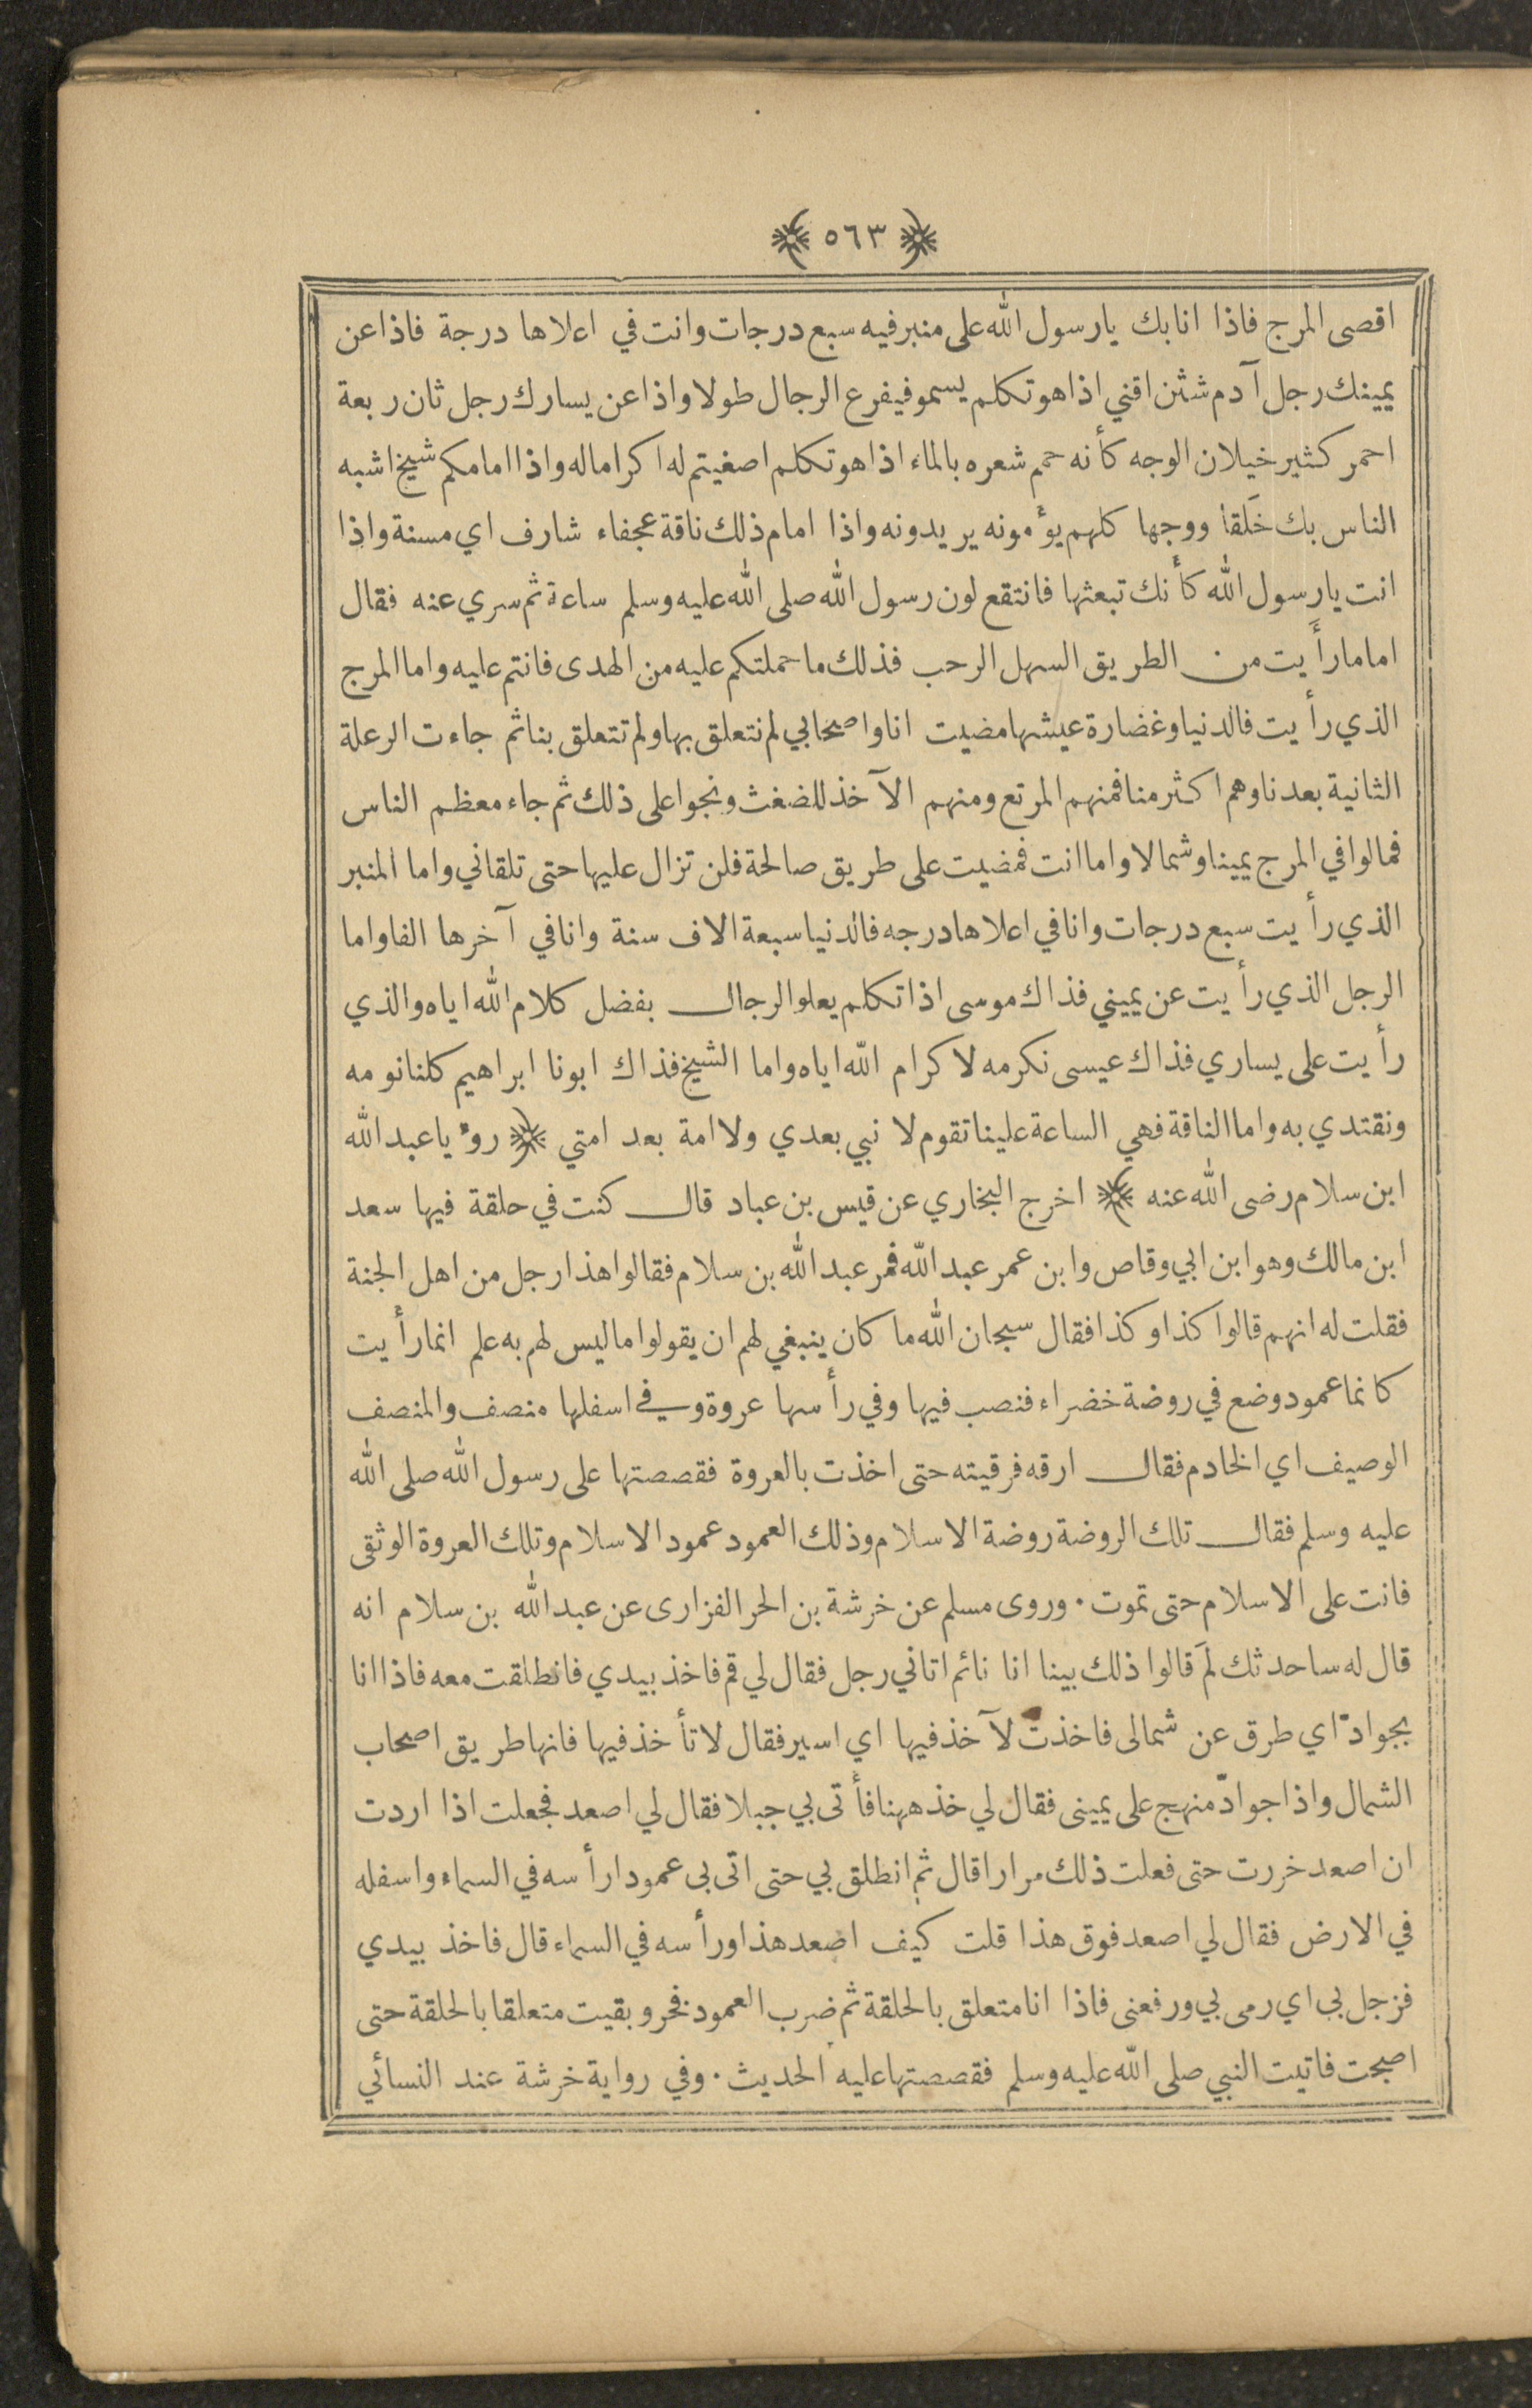 ﴿ ٥٦٣ ﴾
اقصى المرج فاذا انا بك يا رسول الله على منبر فيه سبع درجات وانت في اعلاها درجة فاذا عن
يمينك رجل آدم شثن اقني اذا هو تكلم يسمو فيفرع الرجال طولا واذا عن يسارك رجل ثان ربعة
احمر كثير خيلان الوجه كأنه حمم شعره بالماء اذا هو تكلم اصغيتم له اكراما له واذا امامكم شيخ اشبه
الناس بك خَلقا ووجها كلهم يؤمونه يريدونه واذا امام ذلك ناقة عجفاء شارف اي مسنة واذا
انت يا رسول الله كأنك تبعثها فانتقع لون رسول الله صلى الله عليه وسلم ساعة ثم سري عنه فقال
اما ما رأيت من الطريق السهل الرحب فذلك ما حملتكم عليه من الهدى فانتم عليه واما المرج
الذي رأيت فالدنيا وغضارة عيشها مضيت انا واصحابي لم نتعلق بها ولم تتعلق بنا ثم جاءت الرعلة
الثانية بعدنا وهم اكثر منا فمنهم المرتع ومنهم الآخذ للضغث ونجوا على ذلك ثم جاء معظم الناس
فمالوا في المرج يمينا وشمالا واما انت فمضيت على طريق صالحة فلن تزال عليها حتى تلقاني واما المنبر
الذي رأيت سبع درجات وانا في اعلاها درجه فالدنيا سبعة الاف سنة وانا في آخرها الفا واما
الرجل الذي رأيت عن يميني فذاك موسى اذا تكلم يعلو الرجال بفضل كلام الله اياه والذي
رأيت على يساري فذاك عيسى نكرمه لاكرام الله اياه واما الشيخ فذاك ابونا ابراهيم كلنا نومه
ونقتدي به واما الناقة فهي الساعة علينا تقوم لا نبي بعدي ولا امة بعد امتي ﴿ رؤيا عبد الله
ابن سلام رضى الله عنه ﴾ اخرج البخاري عن قيس بن عباد قال كنت في حلقة فيها سعد
ابن مالك وهو ابن ابي وقاص وابن عمر عبد الله فمر عبد الله بن سلام فقالوا هذا رجل من اهل الجنة
فقلت له انهم قالوا كذا وكذا فقال سبحان الله ما كان ينبغي لهم ان يقولوا ما ليس لهم به علم انما رأيت
كانما عمود وضع في روضة خضراء فنصب فيها وفي رأسها عروة وفي اسفلها منصف والمنصف
الوصيف اي الخادم فقال ارقه فرقيته حتى اخذت بالعروة فقصصتها على رسول الله صلى الله
عليه وسلم فقال تلك الروضة روضة الاسلام وذلك العمود عمود الاسلام وتلك العروة الوثقى
فانت على الاسلام حتى تموت . وروى مسلم عن خرشة بن الحر الفزارى عن عبد الله بن سلام انه
قال له ساحدثك لمَ قالوا ذلك بينا انا نائم اتاني رجل فقال لي قم فاخذ بيدي فانطلقت معه فاذا انا
بجوادّ اي طرق عن شمالى فاخذت لآخذ فيها اي اسير فقال لا تأخذ فيها فانها طريق اصحاب
الشمال واذا جوادّ منهج على يمينى فقال لي خذ ههنا فأتى بي جبلا فقال لي اصعد فجعلت اذا اردت
ان اصعد خررت حتى فعلت ذلك مرارا قال ثم انطلق بي حتى اتى بى عمودا رأسه في السماء واسفله
في الارض فقال لي اصعد فوق هذا قلت كيف اصعد هذا ورأسه في السماء قال فاخذ بيدي
فزجل بى اي رمى بي ورفعنى فاذا انا متعلق بالحلقة ثم ضرب العمود فخر وبقيت متعلقا بالحلقة حتى
اصبحت فاتيت النبي صلى الله عليه وسلم فقصصتها عليه الحديث . وفي رواية خرشة عند النسائي